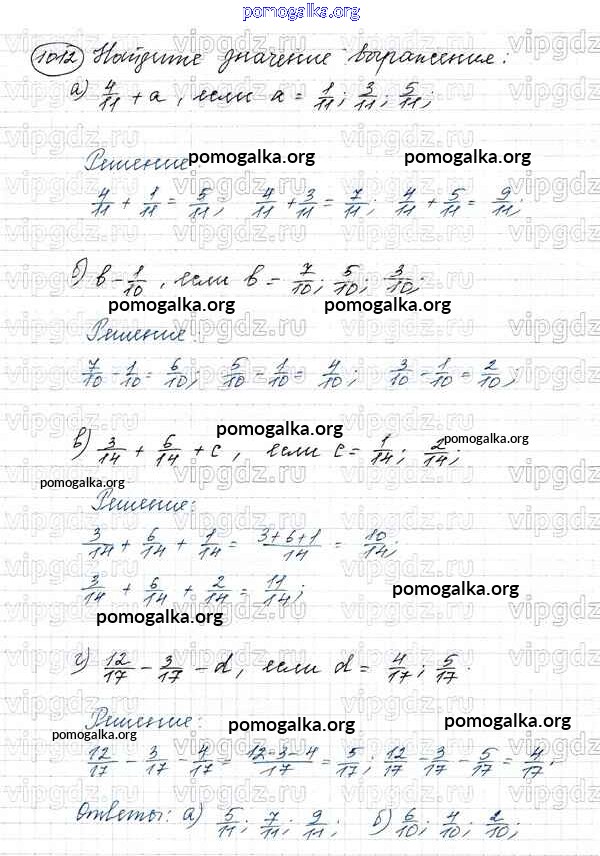 pomogalka.org
1012 Найдите значение выражения:
а) 4/11 + a, если a = 1/11; 3/11; 5/11;
Решение
pomogalka.org pomogalka.org
4/11 + 1/11 = 5/11; 4/11 + 3/11 = 7/11; 4/11 + 5/11 = 9/11;
б) в - 1/10, если в = 7/10; 5/10; 3/10;
pomogalka.org pomogalka.org
Решение:
7/10 - 1/10 = 6/10; 5/10 - 1/10 = 4/10; 3/10 - 1/10 = 2/10;
pomogalka.org pomogalka.org
в) 3/14 + 6/14 + c, если c = 1/14; 2/14;
pomogalka.org
Решение:
3/14 + 6/14 + 1/14 = 3+6+1/14 = 10/14;
3/14 + 6/14 + 2/14 = 11/14;
pomogalka.org
pomogalka.org
г) 12/17 - 3/17 - d, если d = 4/17; 5/17.
Решение:
pomogalka.org pomogalka.org pomogalka.org
12/17 - 3/17 - 4/17 = 12-3-4/17 = 5/17; 12/17 - 3/17 - 5/17 = 4/17;
Ответы: а) 5/11; 7/11; 9/11; б) 6/10; 4/10; 2/10;
vipgdz.ru